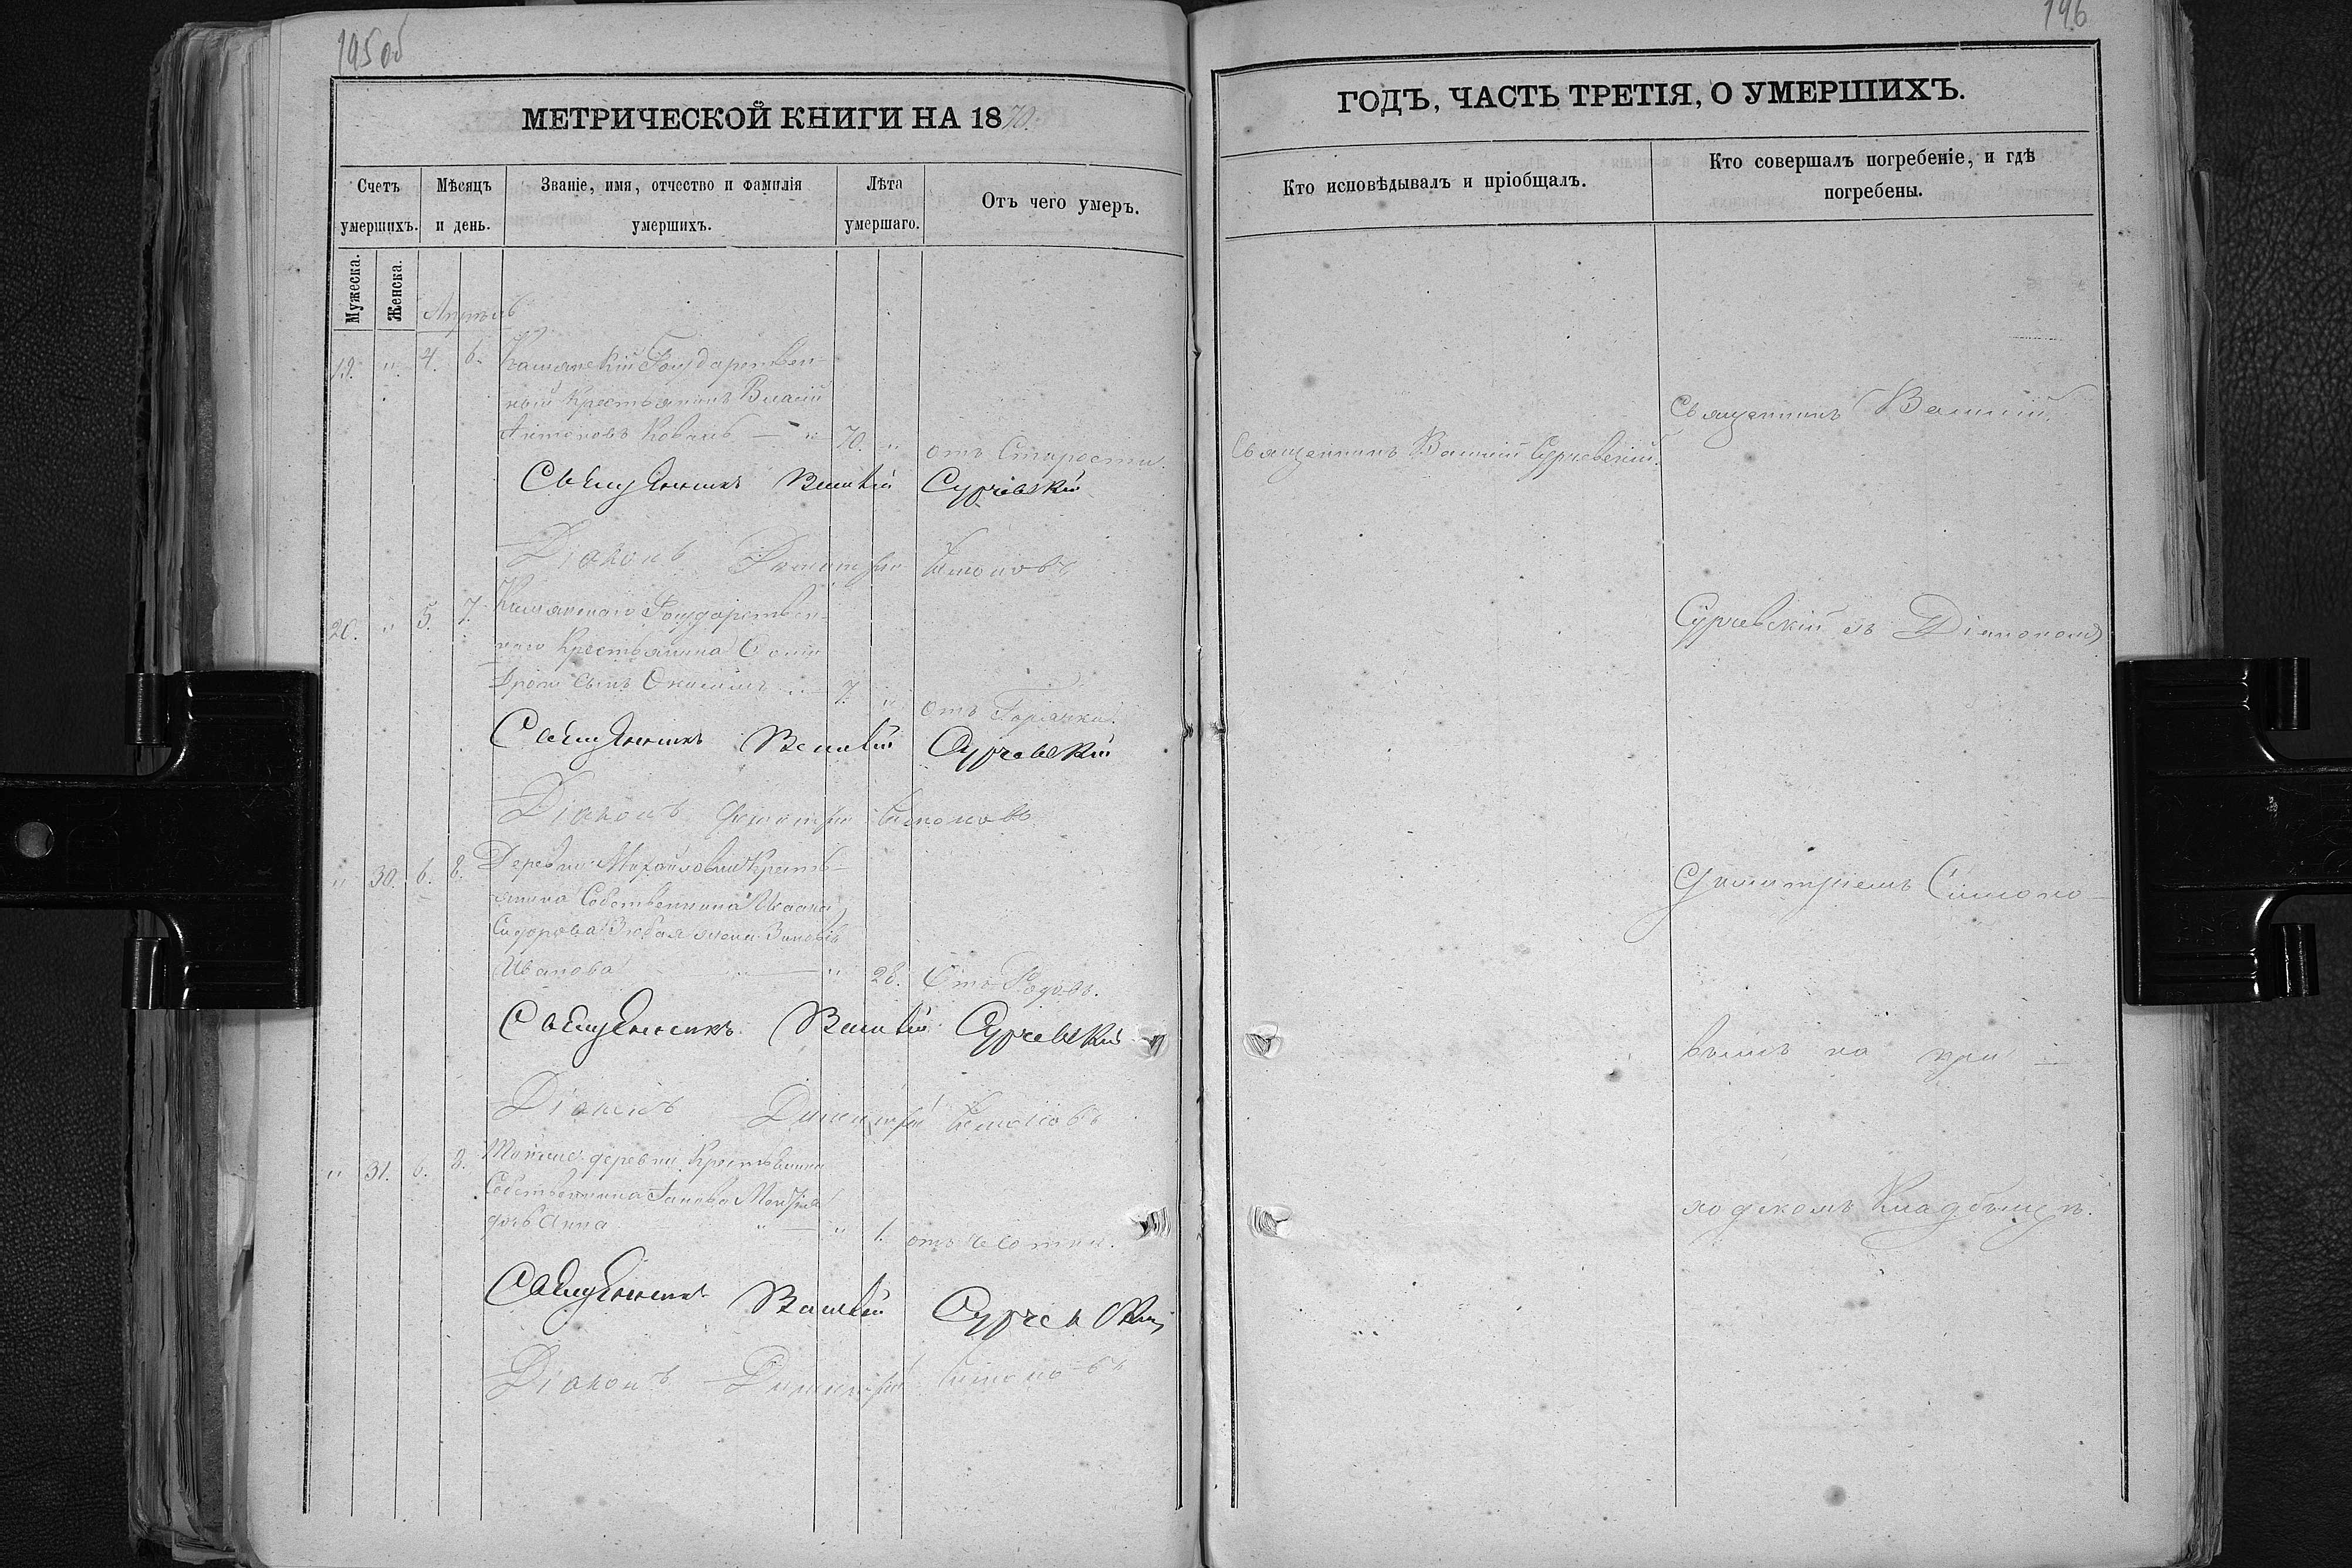 195 об
МЕТРИЧЕСКОЙ КНИГИ НА 1870.
Счетъ умершихъ.
Мѣсяцъ и день.
Званіе, имя, отчество и фамилія умершихъ.
Лѣта умершаго.
Отъ чего умеръ.
Мужеска.
Женска.
Апрѣль
19. " 4. 6. Камянскій Государствен-
ный Крестьянинъ Власій
Антоновъ Коваль — " 70. " отъ Старости.
Священникъ Василій Сурчевскій
Діаконъ Димитрій Симоновъ
20. " 5. 7. Камянскаго Государствен-
наго Крестьянина
сынъ 7. " Отъ Горячки.
Священникъ Василій Сурчевскій
Діаконъ Димитрій Симоновъ
" 30. 6. 8. Деревни Михайловки Кресть-
янина Собственника Ивана
Сидорова жена
Иванова — " 28. Отъ Родовъ.
Священникъ Василій Сурчевскій
Діаконъ Димитрій Симоновъ
" 31. 6. 8. Тойже деревни Крестьянина
Собственника
дочь Анна " — " 1. отъ
Священникъ Василій Сурчевскій
Діаконъ Димитрій Симоновъ
196
ГОДЪ, ЧАСТЬ ТРЕТІЯ, О УМЕРШИХЪ.
Кто исповѣдывалъ и пріобщалъ.
Кто совершалъ погребеніе, и гдѣ
погребены.
Священникъ Василій Сурчевскій.
Священникъ Василій
Сурчевскій съ Діакономъ
Димитріемъ Симоно-
вымъ на при-
ходскомъ Кладбищѣ.